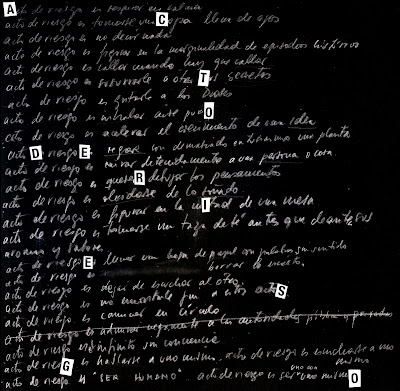 Acto de riesgo es respirar en
acto de riesgo es tomarse una Copa llena de ojos
acto de riesgo es no decir nada
acto de riesgo es figurar en la marginalidad de episodios históricos
acto de riesgo es callar cuando hay que callar
acto de riesgo es susurrarle a otro Tus secretos
acto de riesgo es gritarle a los Dioses
acto de riesgo es
acto de riesgo es acelerar el crecimiento de una idea
acto DE riesgo es regar con demasiado entusiasmo una planta
acto de riesgo es mirar detenidamente a una persona o cosa
acto de riesgo es querer dibujar los pensamientos
acto de riesgo es olvidarse de lo soñado
acto de riesgo es figurar en la mitad de una mesa
acto de riesgo es tomarse una taza de té antes que
aroma y sabor
acto de riesgo Es llenar una hoja de papel con palabras sin sentido
acto de riesgo es borrar lo escrito
acto de riesgo es dejar de escuchar al otro
acto de riesgo es no encontrarle fin a estos actoS
acto de riesgo es caminar en círculo
acto de riesgo es admirar
acto de riesgo es infinito sin
acto de riesGo es hablarse a uno mismo. acto de riesgo es escucharse a uno mismo
acto de riesgo es "SER HUMANO" acto de riesgo es uno con uno mismO